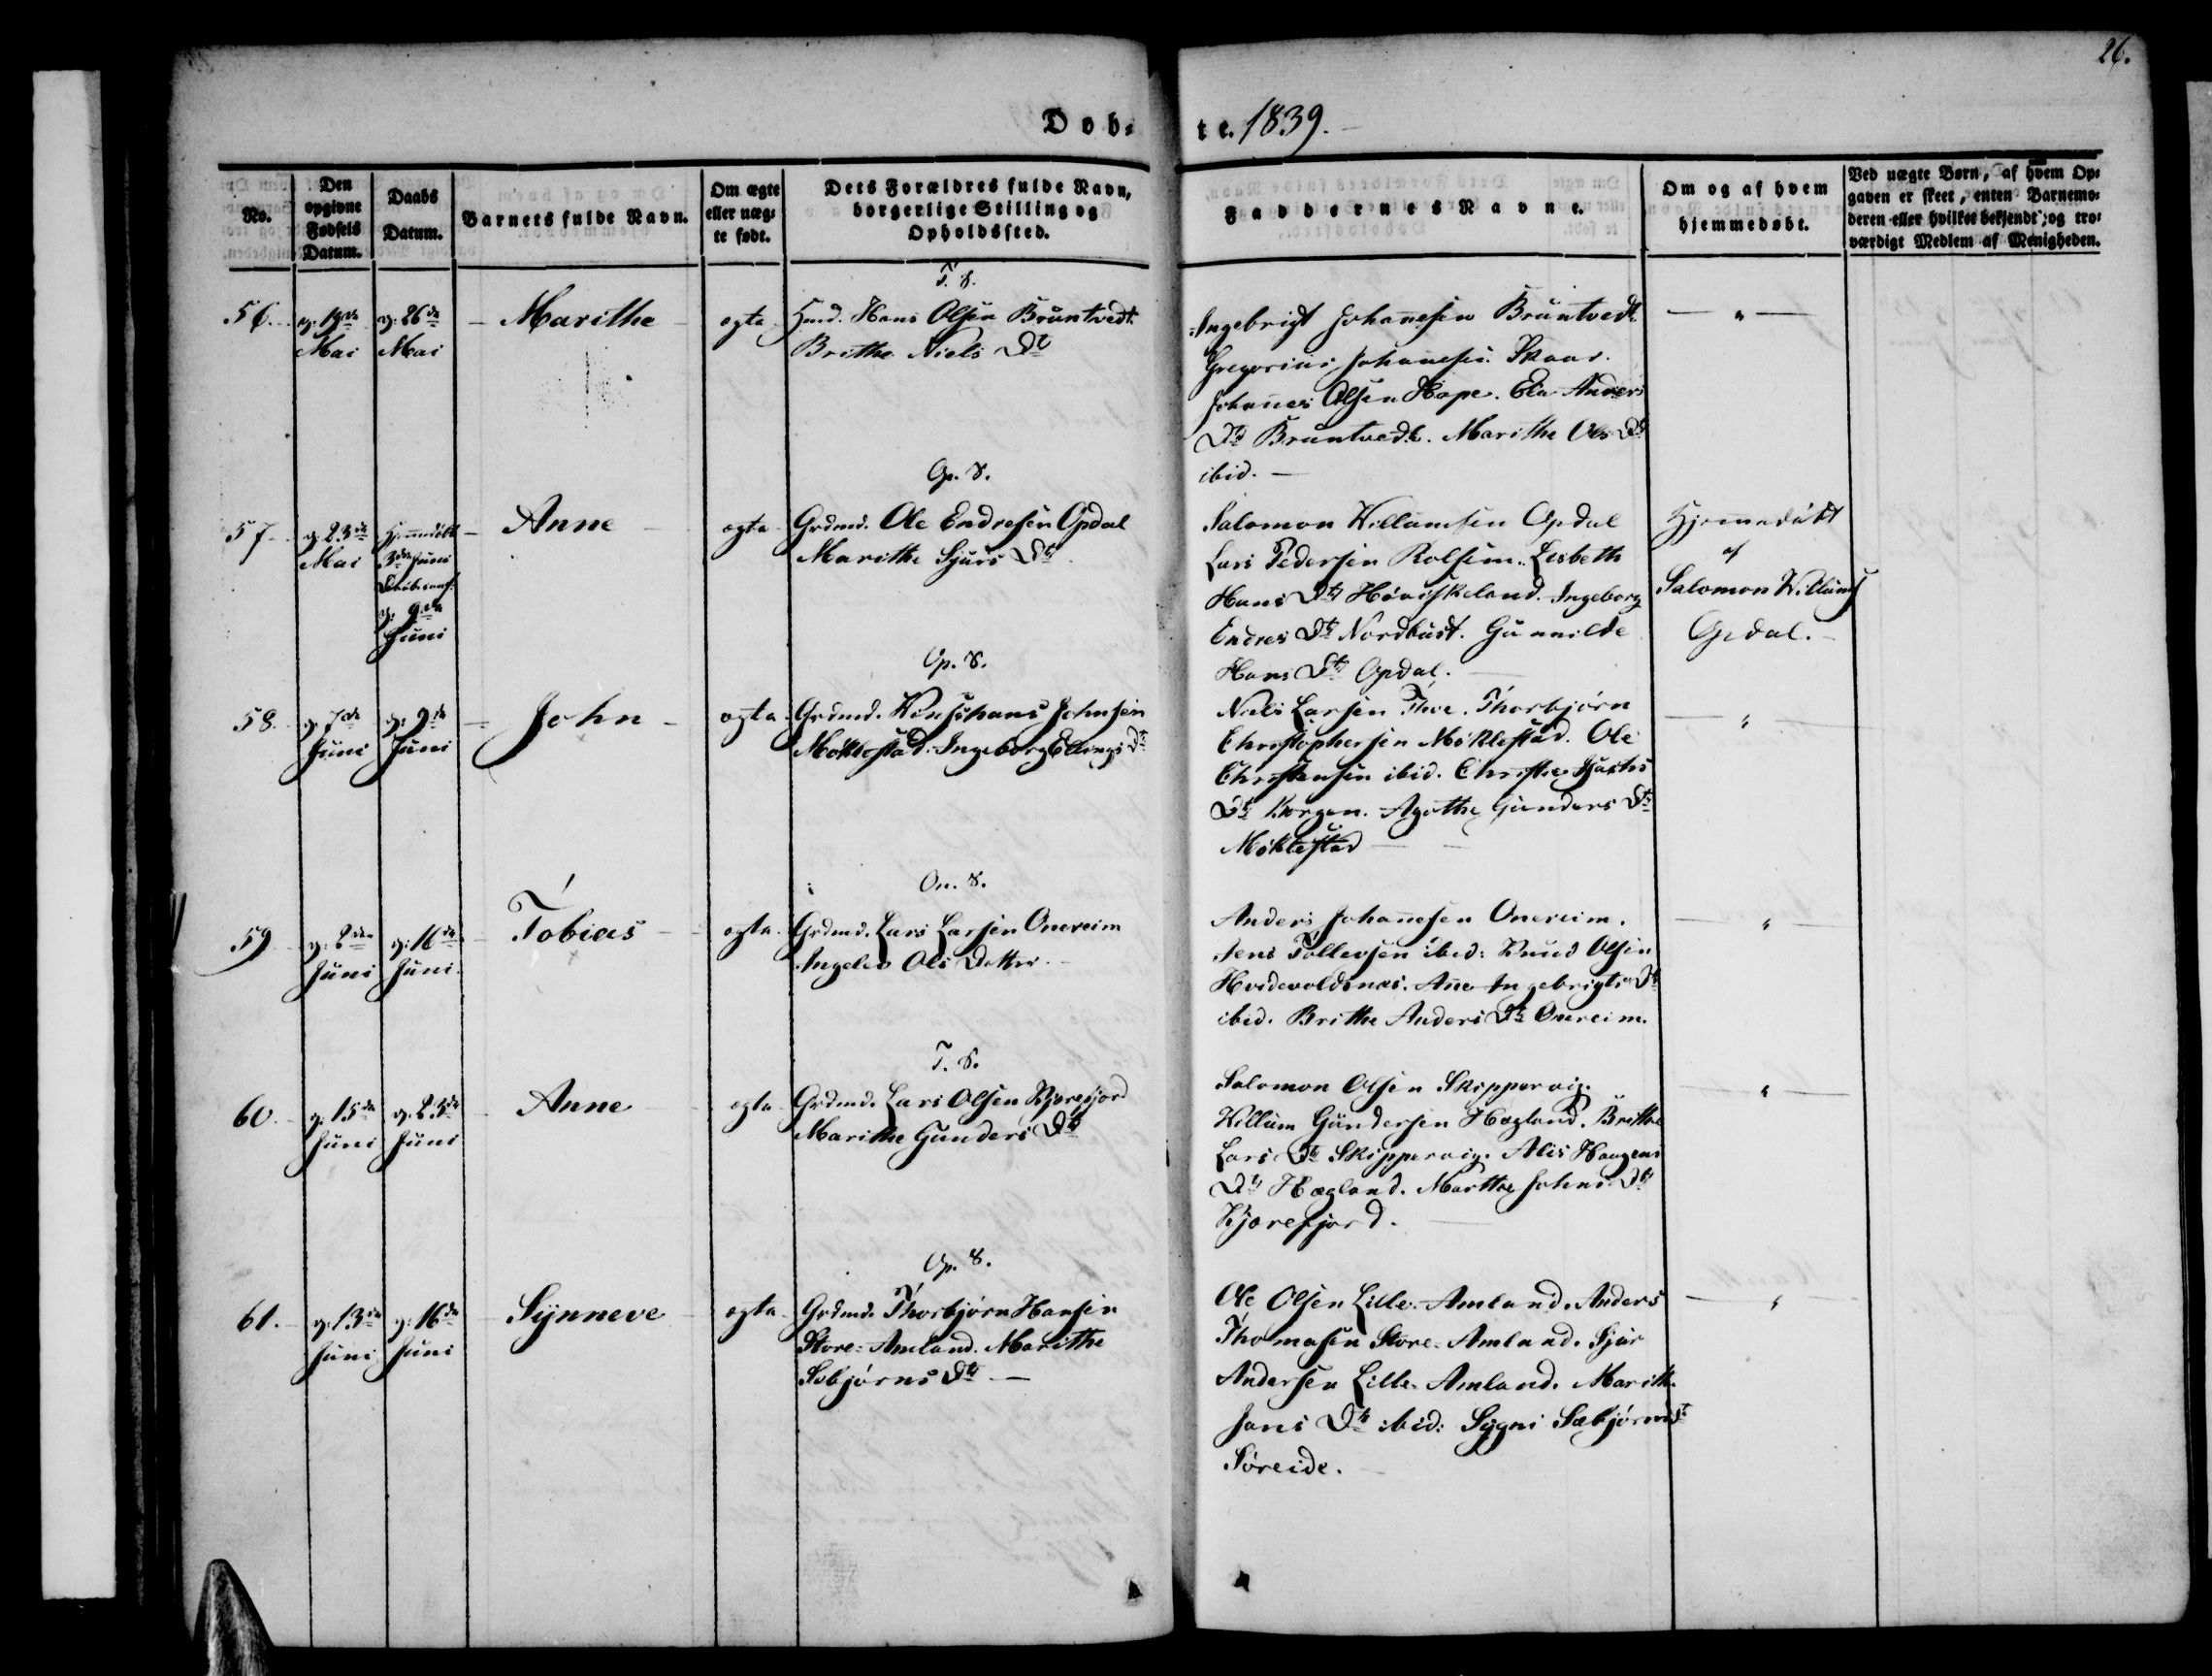 26.
Døb-
te. 1839.
No.
Den opgivne Fødsels Datum.
Daabs Datum.
Barnets fulde Navn.
Om ægte eller uægte født.
Dets Forældres fulde Navn, borgerlige Stilling og Opholdssted.
Faddernes Navne.
Om og af hvem hjemmedøbt.
Ved uægte Børn, af hvem Opgaven er skeet, enten Barnemoderen eller hvilket bekjendt og troværdigt Medlem af Menigheden.
T. S.
56. 19de Mai 26de Mai Marithe ægte
Hmd. Hans Olsen Bruntvedt
Brithe Niels Dtr
Ingebrigt Johannesen Bruntvedt
Gregorius Johannesen Skaar.
Johannes Olsen Hope. Anders
Dtr Bruntvedt. Marithe Ols Dtr
ibid.
Op. S.
57. 23de Mai Hjemmedøbt 3die Juni 9de Juni Anne ægte
Grdmd. Ole Endresen Opdal
Marithe Sjurs Dtr
Salomon Willumsen Opdal
Lars Pedersen Rolfsem. Lisbeth
Hans Dtr Høviskeland. Ingeborg
Endres Dtr Nordhust. Gunnilde
Hans Dtr Opdal.
Hjemmedøbt
af
Salomon Willums
Opdal.
Op. S.
58. 7de Juni 9de Juni John ægte
Grdmd. Johnsen
Møklestad. Ingeborg Ellings Dtr
Niels Larsen Thoe. Thorbjørn
Christophersen Møklestad. Ole
Christensen ibid. Christie
Dtr Borgen. Agathe Gunders Dtr
Møklestad
On. S.
59 2den Juni 16de Juni Tobias ægte
Grdmd. Lars Larsen Onereim
Ingelev Ols Datter.
Anders Johannesen Onereim.
Jens Tollevsen ibid: Knud Olsen
Hvidevoldsnæs. Anne Ingebrigts Dtr
ibid. Brithe Anders Dtr Onereim.
T. S.
60. 15de Juni 23de Juni Anne ægte
Grdmd. Lars Olsen Kjørefjord
Marithe Gunders Dtr
Salomon Olsen Skippervig.
Willum Gundersen Hægland. Brithe
Lars Dtr Skippervig. Alis Haagens
Dtr Hægland. Marthe Johns Dtr
Kjørefjord.
Op. S.
61. 13de Juni 16de Juni Synneve ægte
Grdmd. Thorbjørn Hansen
Store-Amland. Marithe
Sebjørns Dtr
Ole Olsen Lille-Amland. Anders
Thomasen Store-Amland. Sjur
Andersen Lille-Amland. Marith
Jans Dtr ibid: Sygni Sæbjørnsdt
Søreide.